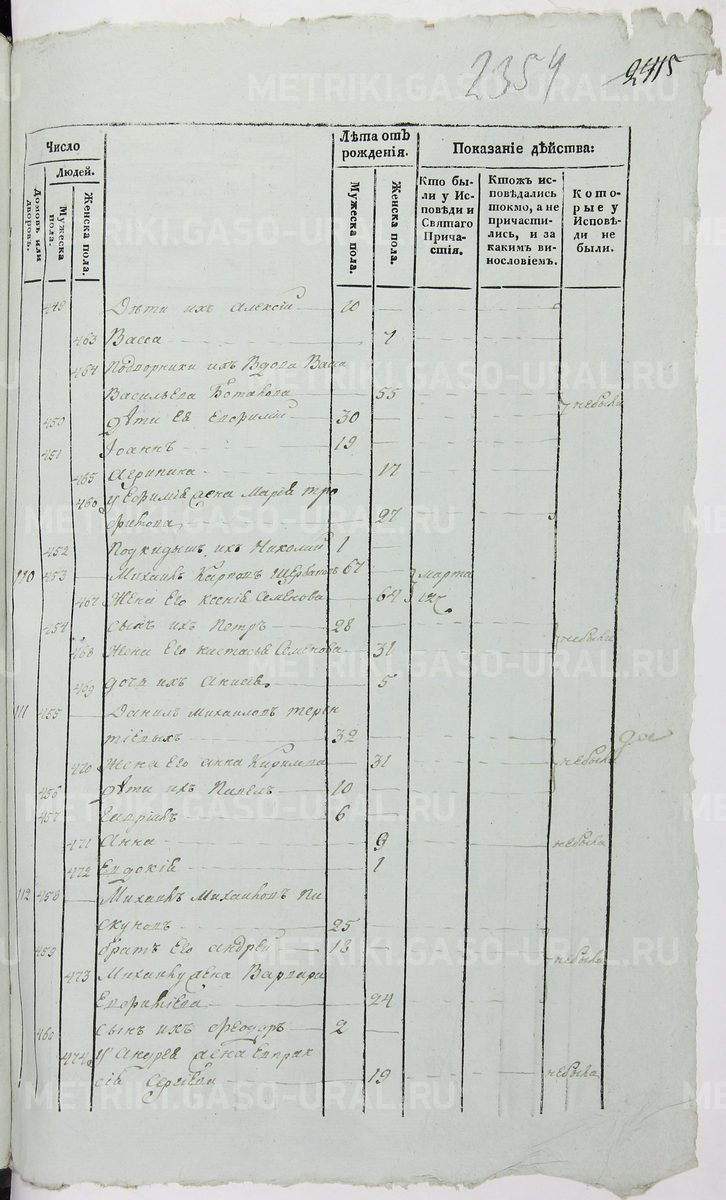 2354 2415
Число
Людей.
Домовъ или дворовъ.
Мужеска пола.
Женска пола.
Лѣта отъ рожденія.
Мужеска пола.
Женска пола.
Показаніе дѣйства:
Кто были у Исповѣди и Святаго Причастія.
Ктожъ исповѣдались токмо, а не причастились, и за какимъ винословіемъ.
Которые у Исповѣди не были.
449 Дѣти ихъ Алексій 10
463 Васса 7
464 Подворники ихъ Вдова
Васильева 55 небыли
450 Дѣти Ея 30
451 Іоаннъ 19
465 Агрипина 17
466 жена Марія Тро
фимова 27
452 Подкидышъ ихъ Николай 1
110 453 Михаилъ Карповъ Щербаковъ 67 марта
467 Жена Его Ксенія Семенова 64 12
454 Сынъ ихъ Петръ 28
468 Жена Его Настасья Семенова 31 небыли
469 Дочь ихъ Анисія 5
111 455 Данилъ Михайловъ Терен
тіевыхъ 32
470 Жена Его Анна 31 небыли
456 Дѣти ихъ Павелъ 10
457 6
471 Анна 9 небыла
472 Евдокія 1
112 458 Михаилъ Михайловъ Пи
скуновъ 25
459 братъ Его Андрей 18 небыли
473 Михаилы жена Варвара
24
460 Сынъ ихъ Феодоръ 2
474 У Андрея жена Евпрак
сія 19 небыла
METRIKI.GASO-URAL.RU